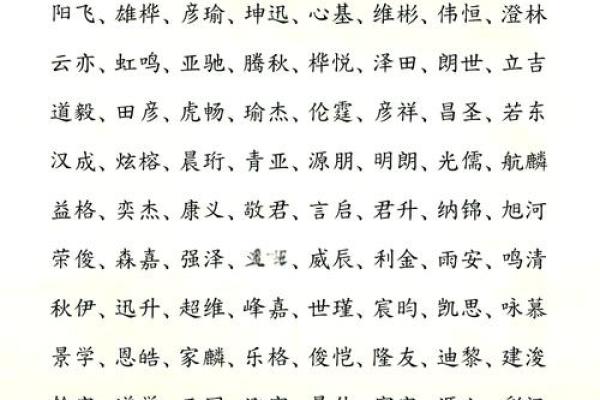 阳飞、雄桦、彦瑜、坤迅、心基、维彬、伟恒、澄林
云亦、虹鸣、亚驰、腾秋、桦悦、泽田、朗世、立吉
道毅、田彦、虎畅、瑜杰、伦霆、彦祥、昌圣、若东
汉成、炫榕、晨珩、青亚、源朋、明朗、光儒、航麟
益格、奕杰、康义、敬君、言启、君升、纳锦、旭河
荣俊、森嘉、强泽、、威辰、利金、雨安、鸣清
秋伊、迅升、超维、峰嘉、世瑾、宸昀、凯思、咏慕
景学、恩皓、家麟、乐格、俊恺、隆友、迪黎、建浚